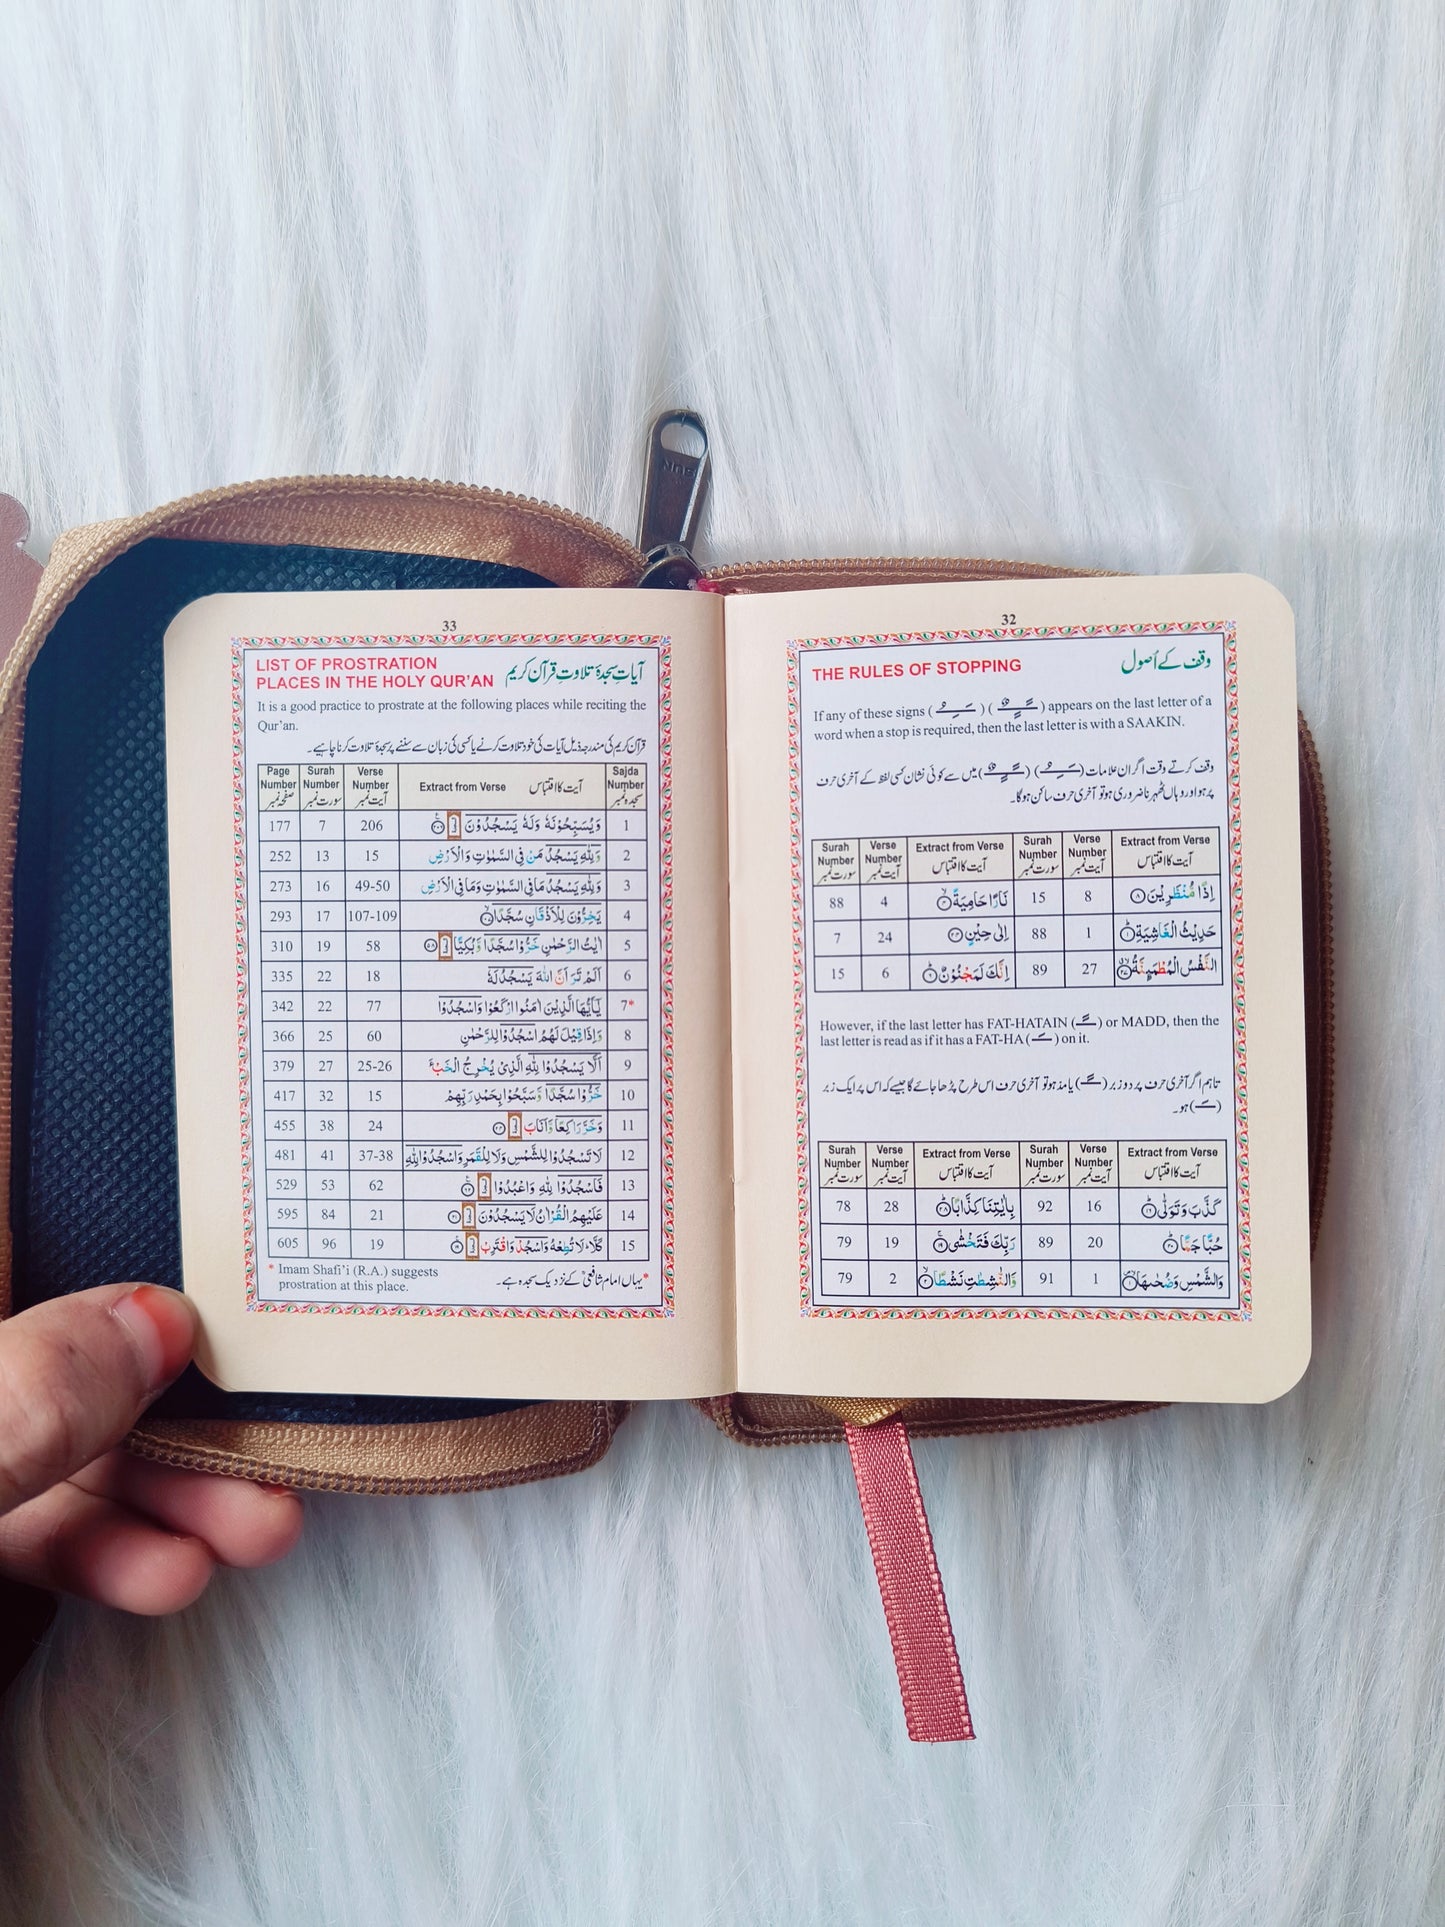 SUN
33
LIST OF PROSTRATION
PLACES IN THE HOLY QUR'AN
آیاتِ سجدۂ تلاوتِ قرآن کریم
It is a good practice to prostrate at the following places while reciting the
Qur'an.
قرآن کریم کی مندرجہ ذیل آیات کی خود تلاوت کرنے یا کسی کی زبان سے سننے پر سجدۂ تلاوت کرنا چاہیے۔
Page Number صفحہ نمبر | Surah Number سورت نمبر | Verse Number آیت نمبر | Extract from Verse آیت کا اقتباس | Sajda Number سجدہ نمبر
177 7 206 وَيُسَبِّحُوْنَهٗ وَلَهٗ يَسْجُدُوْنَ 1
252 13 15 وَلِلّٰهِ يَسْجُدُ مَنْ فِي السَّمٰوٰتِ وَالْاَرْضِ 2
273 16 49-50 وَلِلّٰهِ يَسْجُدُ مَا فِي السَّمٰوٰتِ وَمَا فِي الْاَرْضِ 3
293 17 107-109 يَخِرُّوْنَ لِلْاَذْقَانِ سُجَّدًا 4
310 19 58 اٰيٰتُ الرَّحْمٰنِ خَرُّوْا سُجَّدًا وَّبُكِيًّا 5
335 22 18 اَلَمْ تَرَ اَنَّ اللّٰهَ يَسْجُدُ لَهٗ 6
342 22 77 يٰٓاَيُّهَا الَّذِيْنَ اٰمَنُوا ارْكَعُوْا وَاسْجُدُوْا 7*
366 25 60 وَاِذَا قِيْلَ لَهُمُ اسْجُدُوْا لِلرَّحْمٰنِ 8
379 27 25-26 اَلَّا يَسْجُدُوْا لِلّٰهِ الَّذِيْ يُخْرِجُ الْخَبْءَ 9
417 32 15 خَرُّوْا سُجَّدًا وَّسَبَّحُوْا بِحَمْدِ رَبِّهِمْ 10
455 38 24 وَخَرَّ رَاكِعًا وَّاَنَابَ 11
481 41 37-38 لَا تَسْجُدُوْا لِلشَّمْسِ وَلَا لِلْقَمَرِ وَاسْجُدُوْا لِلّٰهِ 12
529 53 62 فَاسْجُدُوْا لِلّٰهِ وَاعْبُدُوْا 13
595 84 21 عَلَيْهِمُ الْقُرْاٰنُ لَا يَسْجُدُوْنَ 14
605 96 19 كَلَّا ؕ لَا تُطِعْهُ وَاسْجُدْ وَاقْتَرِبْ 15
* Imam Shafi'i (R.A.) suggests
prostration at this place.
*یہاں امام شافعیؒ کے نزدیک سجدہ ہے۔
32
THE RULES OF STOPPING
وقف کے اُصول
If any of these signs ( ) ( ) appears on the last letter of a
word when a stop is required, then the last letter is with a SAAKIN.
وقف کرتے وقت اگر ان علامات ( ) ( ) میں سے کوئی نشان کسی لفظ کے آخری حرف
پر ہو اور وہاں ٹھہرنا ضروری ہو تو آخری حرف ساکن ہوگا۔
Surah Number سورت نمبر | Verse Number آیت نمبر | Extract from Verse آیت کا اقتباس | Surah Number سورت نمبر | Verse Number آیت نمبر | Extract from Verse آیت کا اقتباس
88 4 نَارًا حَامِيَةً 15 8 اِذًا مُّنْظَرِيْنَ
7 24 اِلٰى حِيْنٍ 88 1 حَدِيْثُ الْغَاشِيَةِ
15 6 اِنَّكَ لَمَجْنُوْنٌ 89 27 النَّفْسُ الْمُطْمَئِنَّةُ
However, if the last letter has FAT-HATAIN (ـً) or MADD, then the
last letter is read as if it has a FAT-HA (ـَ) on it.
تاہم اگر آخری حرف پر دو زبر (ـً) یا مد ہو تو آخری حرف اس طرح پڑھا جائے گا جیسے کہ اس پر ایک زبر
(ـَ) ہو۔
Surah Number سورت نمبر | Verse Number آیت نمبر | Extract from Verse آیت کا اقتباس | Surah Number سورت نمبر | Verse Number آیت نمبر | Extract from Verse آیت کا اقتباس
78 28 بِاٰيٰتِنَا كِذَّابًا 92 16 كَذَّبَ وَتَوَلّٰى
79 19 رَبِّكَ فَتَخْشٰى 89 20 حُبًّا جَمًّا
79 2 وَالنّٰشِطٰتِ نَشْطًا 91 1 وَالشَّمْسِ وَضُحٰىهَا